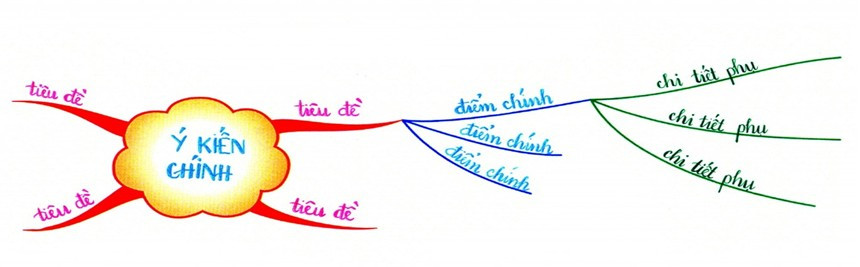 tiêu đề
tiêu đề
Ý KIẾN
CHÍNH
tiêu đề
tiêu đề
điểm chính
điểm chính
điểm chính
chi tiết phụ
chi tiết phụ
chi tiết phụ